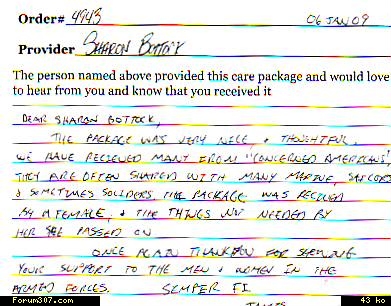 Order# 4943 06 JAN 09
Provider SHARON BOTTOCK
The person named above provided this care package and would love
to hear from you and know that you received it
DEAR SHARON BOTTOCK,
THE PACKAGE WAS VERY NICE, & THOUGHTFUL,
WE HAVE RECIEVED MANY FROM "CONCERNED AMERICANS",
THEY ARE OFTEN SHARED WITH MANY MARINE, SAILORS
& SOMETIMES SOLIDERS. THE PACKAGE WAS RECIEVED
BY A FEMALE, & THE THINGS NOT NEEDED BY
HER SHE PASSED ON
ONCE AGAIN THANK YOU FOR SHOWING
YOUR SUPPORT TO THE MEN & WOMEN IN THE
ARMED FORCES. SEMPER FI
Forum307.com 43 ko